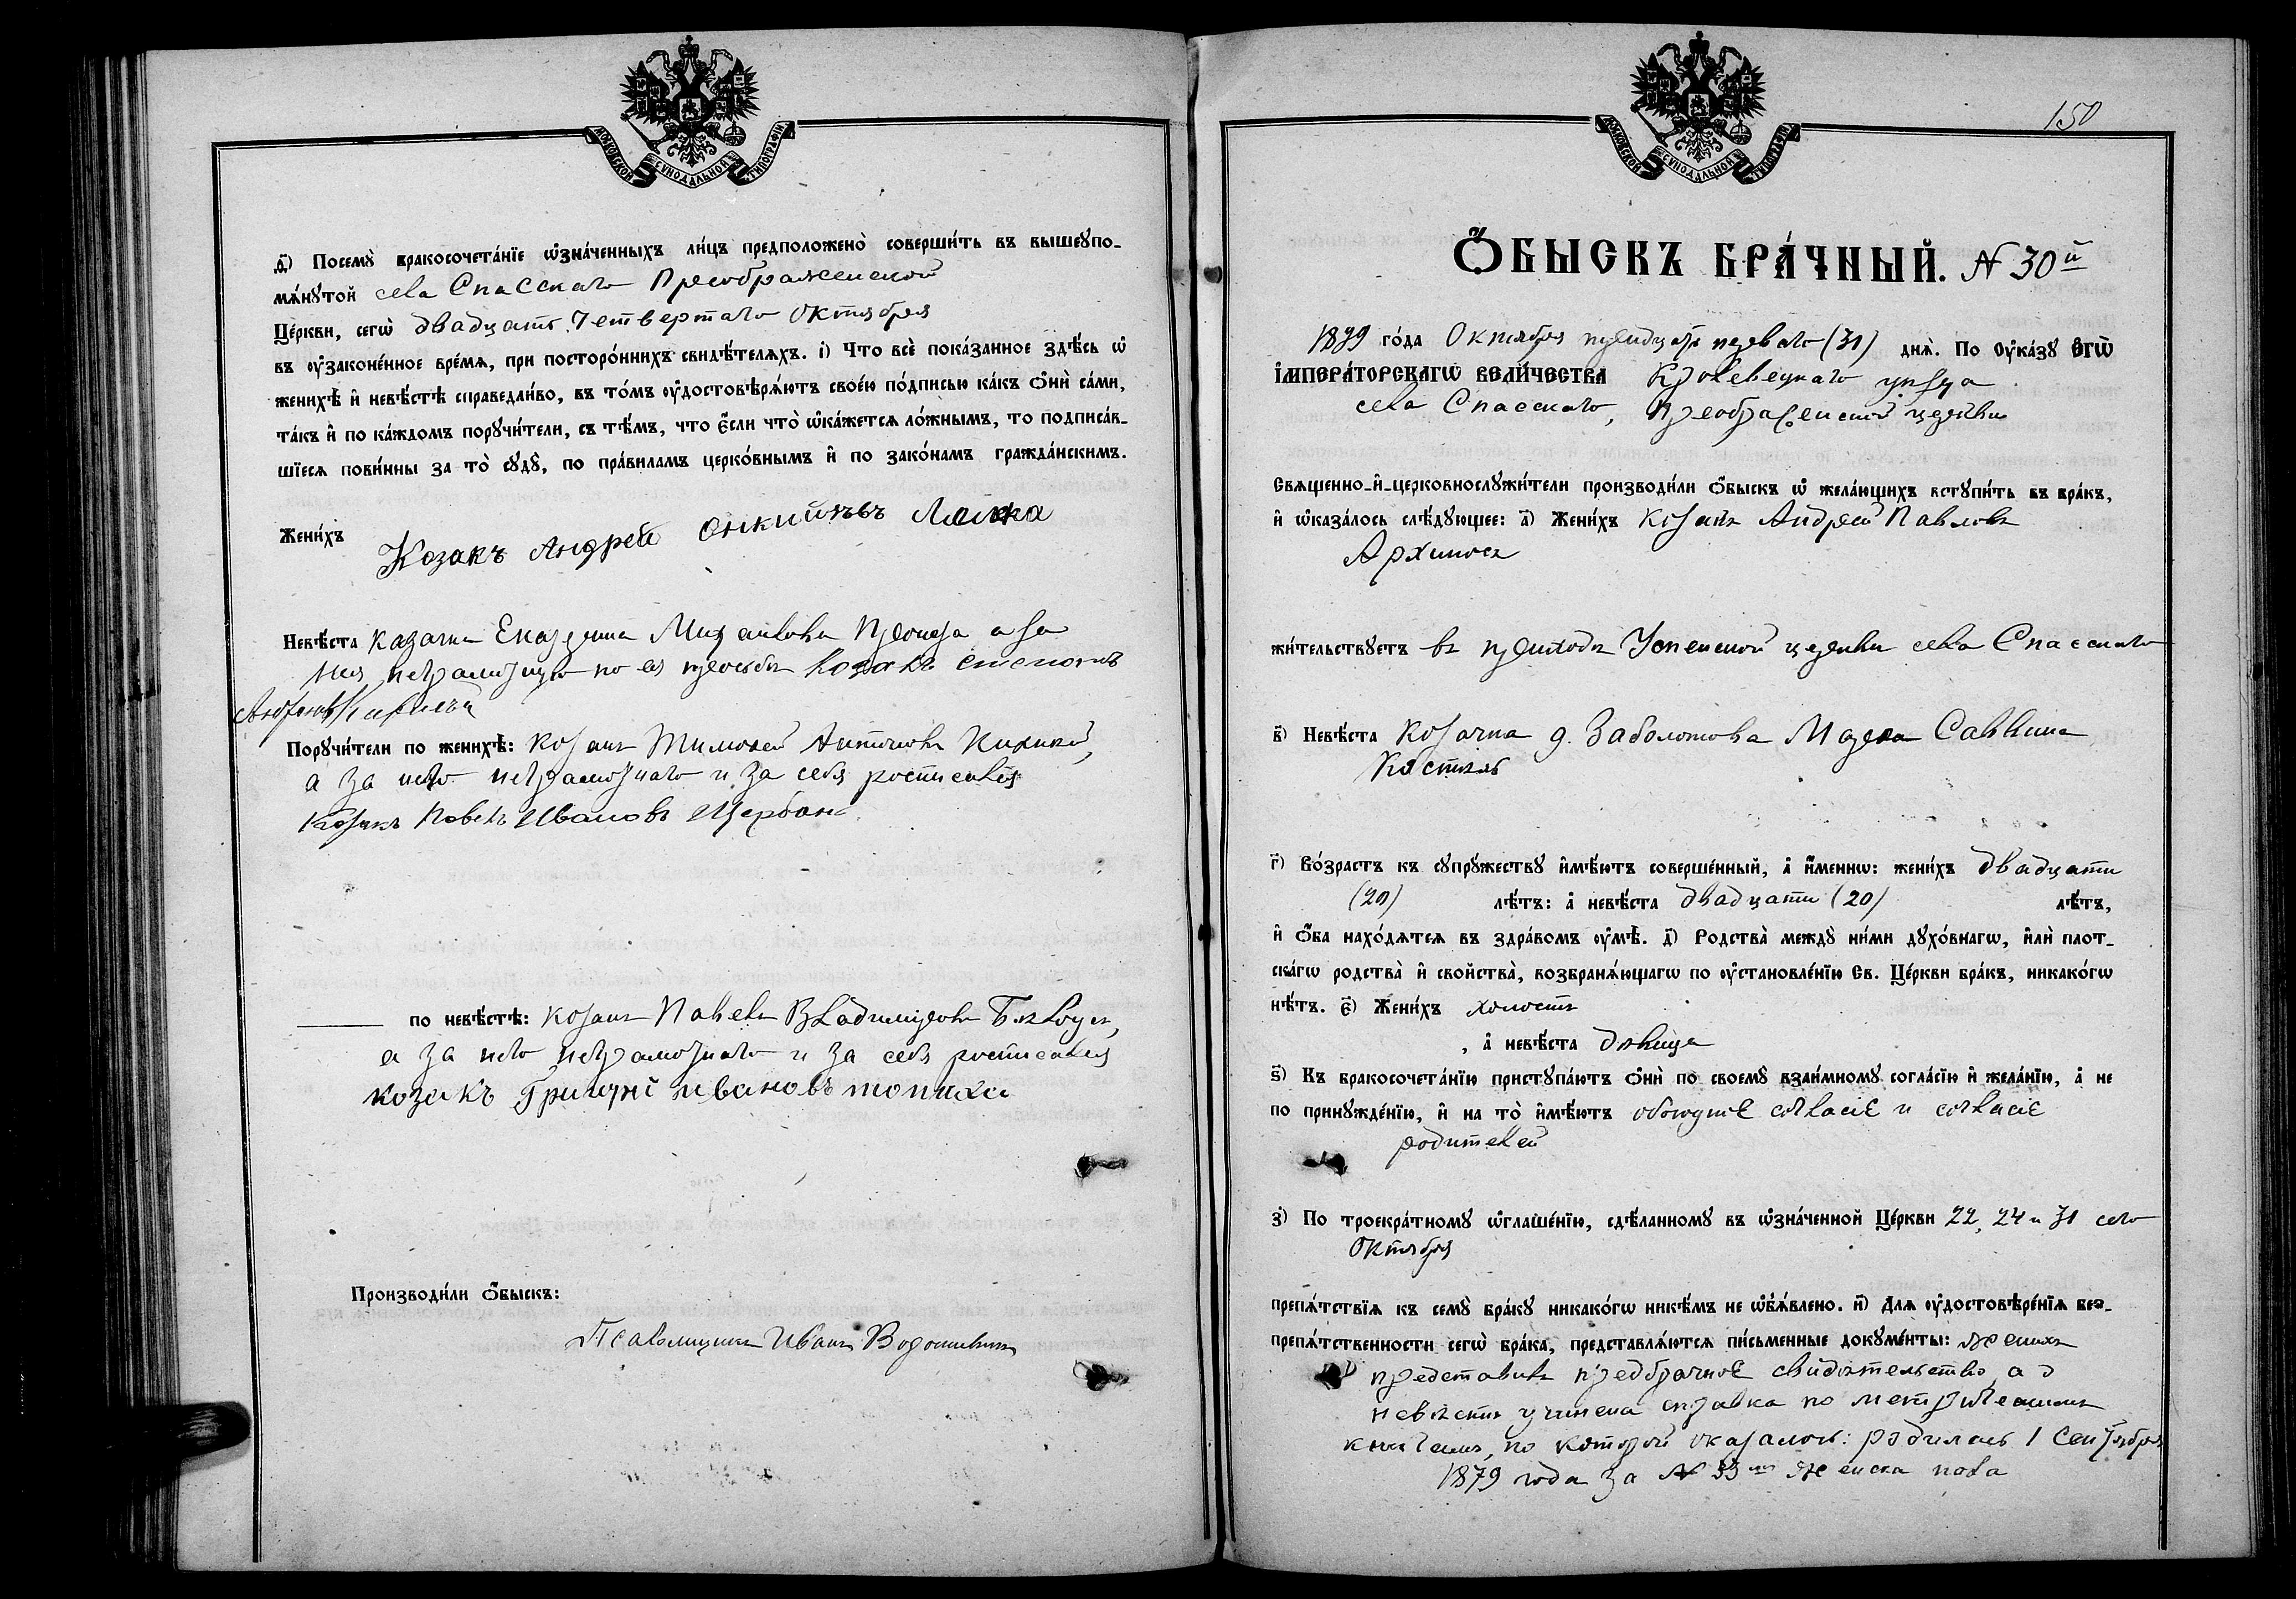 МОСКОВСКОЙ СѴНОДАЛЬНОЙ ТИПОГРАФІИ
ѳ҃) Посемꙋ̀ бракосочета́нїе ѡ҆зна́ченныхъ ли́цъ предположено̀ соверши́ть въ вышеꙋпо-
мѧ́нꙋтой села Спасскаго Преображенской
Це́ркви, сегѡ̀ двадцать четвертаго Октября
въ ᲂу҆законе́нное вре́мѧ, при посторо́ннихъ свидѣ́телѧхъ. і҃) Что всѐ пока́занное здѣ́сь ѡ҆
женихѣ̀ и҆ невѣ́стѣ справедли́во, въ то́мъ ᲂу҆достовѣрѧ́ютъ свое́ю по́дписью ка́къ ѻ҆нѝ са́ми,
та́къ и҆ по ка́ждомъ порꙋчи́тели, съ тѣ́мъ, что є҆́сли что̀ ѡ҆ка́жетсѧ ло́жнымъ, то подписа́в-
шїесѧ пови́нны за то̀ сꙋдꙋ̀, по пра́виламъ церко́внымъ и҆ по зако́намъ гражда́нскимъ.
Жени́хъ Козакъ Андрей
Невѣ́ста казачка Екатерина Михаилова а за
нея неграмотную по ея просьбѣ козакъ
Порꙋчи́тели по женихѣ̀: козакъ Тимофей Антоновъ
а за него неграмотнаго и за себя росписался
козакъ Павелъ Ивановъ Щербакъ
по невѣ́стѣ: козакъ Павелъ Владиміровъ
а за него неграмотнаго и за себя росписался
козакъ Григорій ивановъ топиха
Производи́ли ѻ҆́быскъ:
Псаломщикъ Иванъ
150
МОСКОВСКОЙ СѴНОДАЛЬНОЙ ТИПОГРАФІИ
Ѻ҆́БЫСКЪ БРА́ЧНЫЙ. № 30й
1899 го́да Октября тридцать перваго (31) днѧ̀. По Оу҆ка́зꙋ Є҆гѡ̀
И҆МПЕРА́ТОРСКАГѠ ВЕЛИ́ЧЕСТВА Кролевецкаго уѣзда
села Спасскаго, Преображенской церкви
Свѧщенно-и҆-церковнослꙋжи́тели производи́ли ѻ҆́быскъ ѡ҆ жела́ющихъ встꙋпи́ть въ бра́къ,
и҆ ѡ҆каза́лось слѣ́дꙋющее: а҃) Жени́хъ козакъ Андрей Павловъ
жи́тельствꙋетъ въ приходѣ Успенской церкви села Спасскаго
в҃) Невѣ́ста козачка д. Заболотова Саввина
Костюкъ
г҃) Во́зрастъ къ сꙋпрꙋ́жествꙋ и҆мѣ́ютъ соверше́нный, а҆ и҆́меннѡ: жени́хъ двадцати
(20) лѣ́тъ: а҆ невѣ́ста двадцати (20) лѣ́тъ,
и҆ ѻ҆́ба нахо́дѧтсѧ въ здра́вомъ ᲂу҆мѣ̀. д҃) Родства̀ междꙋ̀ ни́ми дꙋхо́внагѡ, и҆лѝ плот-
ска́гѡ родства̀ и҆ свойства̀, возбранѧ́ющагѡ по ᲂу҆становле́нїю Св. Це́ркви бра́къ, никако́гѡ
нѣ́тъ. є҃) Жени́хъ холостъ
, а҆ невѣ́ста дѣвица
ѕ҃) Къ бракосочета́нїю пристꙋпа́ютъ ѻ҆нѝ по своемꙋ̀ взаи́мномꙋ согла́сїю и҆ жела́нїю, а҆ не
по принꙋжде́нїю, и҆ на то̀ и҆мѣ́ютъ обоюдное согласіе и согласіе
родителей
з҃) По троекра́тномꙋ ѡ҆глаше́нїю, сдѣ́ланномꙋ въ ѡ҆зна́ченной Це́ркви 22, 24 и 31 сего
Октября
препѧ́тствїѧ къ семꙋ̀ бра́кꙋ никако́гѡ никѣ́мъ не ѡ҆б̾ѧ́влено. и҃) Длѧ ᲂу҆достовѣре́нїѧ без-
препѧ́тственности сегѡ̀ бра́ка, представлѧ́ютсѧ пи́сьменные докꙋме́нты: женихъ
представилъ предбрачное свидѣтельство, а о
невѣстѣ учинена справка по метрическимъ
книгамъ, по которой оказалось: родилась 1 Сентября
1879 года за № 33 женска пола